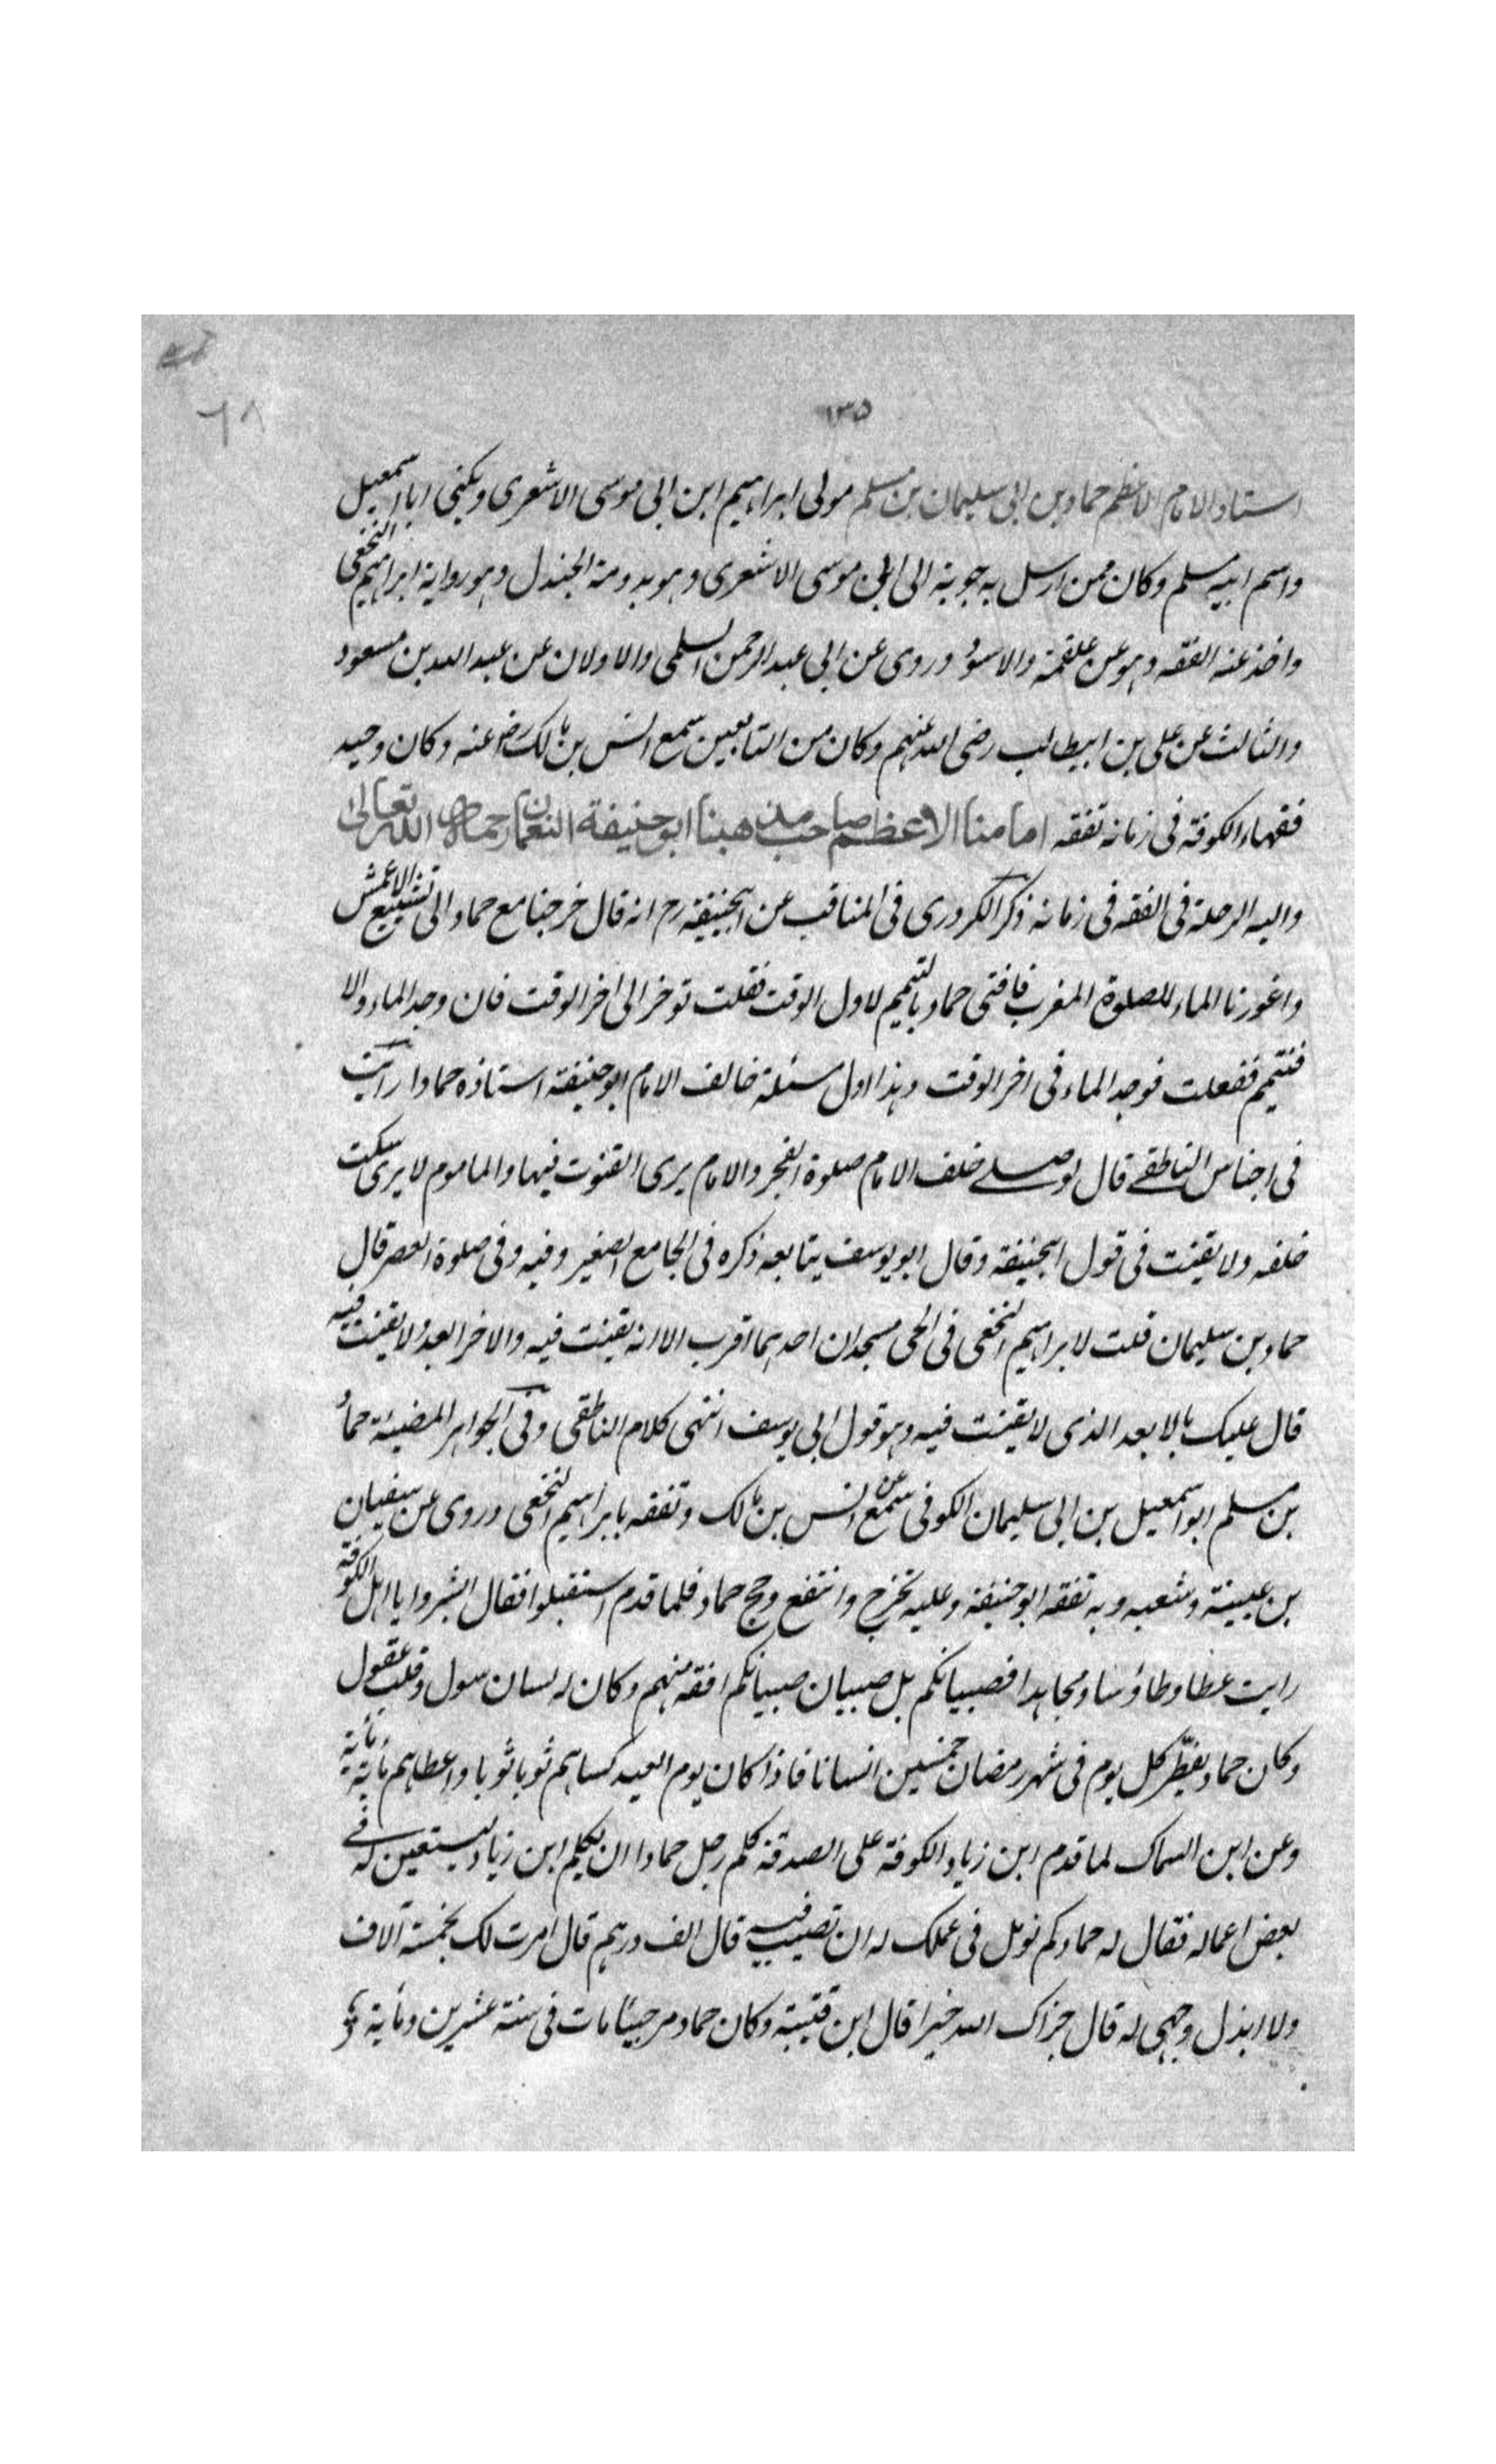 ٦٨
١٣٥
استاد الامام الاعظم حماد بن ابى سليمان بن مسلم مولى ابراهيم ابن ابى موسى الاشعرى ويكنى ابا اسمعيل
واسم ابيه مسلم وكان ممن ارسل به جوبة الى ابى موسى الاشعرى وهو بدومة الجندل وهو رواية ابراهيم النخعى
واخذ عنه الفقه وهو عن علقمة والاسود وروى عن ابى عبد الرحمن السلمى والاولان عن عبد الله بن مسعود
والثالث عن على بن ابيطالب رضى الله عنهم وكان من التابعين سمع انس بن مالك رض عنه وكان وحيد
فقهاء الكوفة فى زمانه تفقه امامنا الاعظم صاحب مذهبنا ابو حنيفة النعمان رحمهما الله تعالى
واليه الرحلة فى الفقه فى زمانه ذكر الكردرى فى المناقب عن ابيحنيفة رح انه قال خرجنا مع حماد الى تشييع الاعمش
واعوزنا الماء للصلوة المغرب فافتى حماد بالتيمم لاول الوقت فقلت توخر الى اخر الوقت فان وجد الماء والا
فنتيمم ففعلت فوجد الماء فى اخر الوقت وهذا اول مسئلة خالف الامام ابو حنيفة استاذه حمادا رايت
فى اجناس الناطفى قال لو صلى خلف الامام صلوة الفجر والامام يرى القنوت فيها والماموم لا يرى سكت
خلفه ولا يقنت فى قول ابيحنيفة وقال ابو يوسف يتابعه ذكره فى الجامع الصغير وفيه وفى صلوة العصر قال
حماد بن سليمان قلت لابراهيم النخعى فى الحى مسجدان احدهما اقرب الا انه يقنت فيه والاخر ابعد ولا يقنت فيه
قال عليك بالابعد الذى لا يقنت فيه وهو قول ابى يوسف انتهى كلام الناطفى وفى الجواهر المضيئة حماد
بن مسلم ابو اسمعيل بن ابى سليمان الكوفى سمع عن انس بن مالك وتفقه بابراهيم النخعى وروى عن سفيان
بن عيينة وشعبه وبه تفقه ابو حنيفة وعليه تخرج وانتفع وحج حماد فلما قدم استقبلوا فقال ابشروا يا اهل الكوفة
رايت عطا وطاؤسا ومجاهدا فصبيانكم بل صبيان صبيانكم افقه منهم وكان له لسان سول وقلب عقول
وكان حماد يفطر كل يوم فى شهر رمضان خمسين انسانا فاذا كان يوم العيد كساهم ثوبا ثوبا واعطاهم مائة مائة
وعن ابن السماك لما قدم ابن زياد الكوفة على الصدقة كلم رجل حمادا ان يكلم ابن زياد يستعين له فى
بعض اعماله فقال له حماد كم تومل فى عملك له ان تصيب فيه قال الف درهم قال امرت لك بخمسة آلاف
ولا ابذل وجهى له قال جزاك الله خيرا قال ابن قتيبة وكان حماد مرجيئا مات فى سنة عشرين ومائة